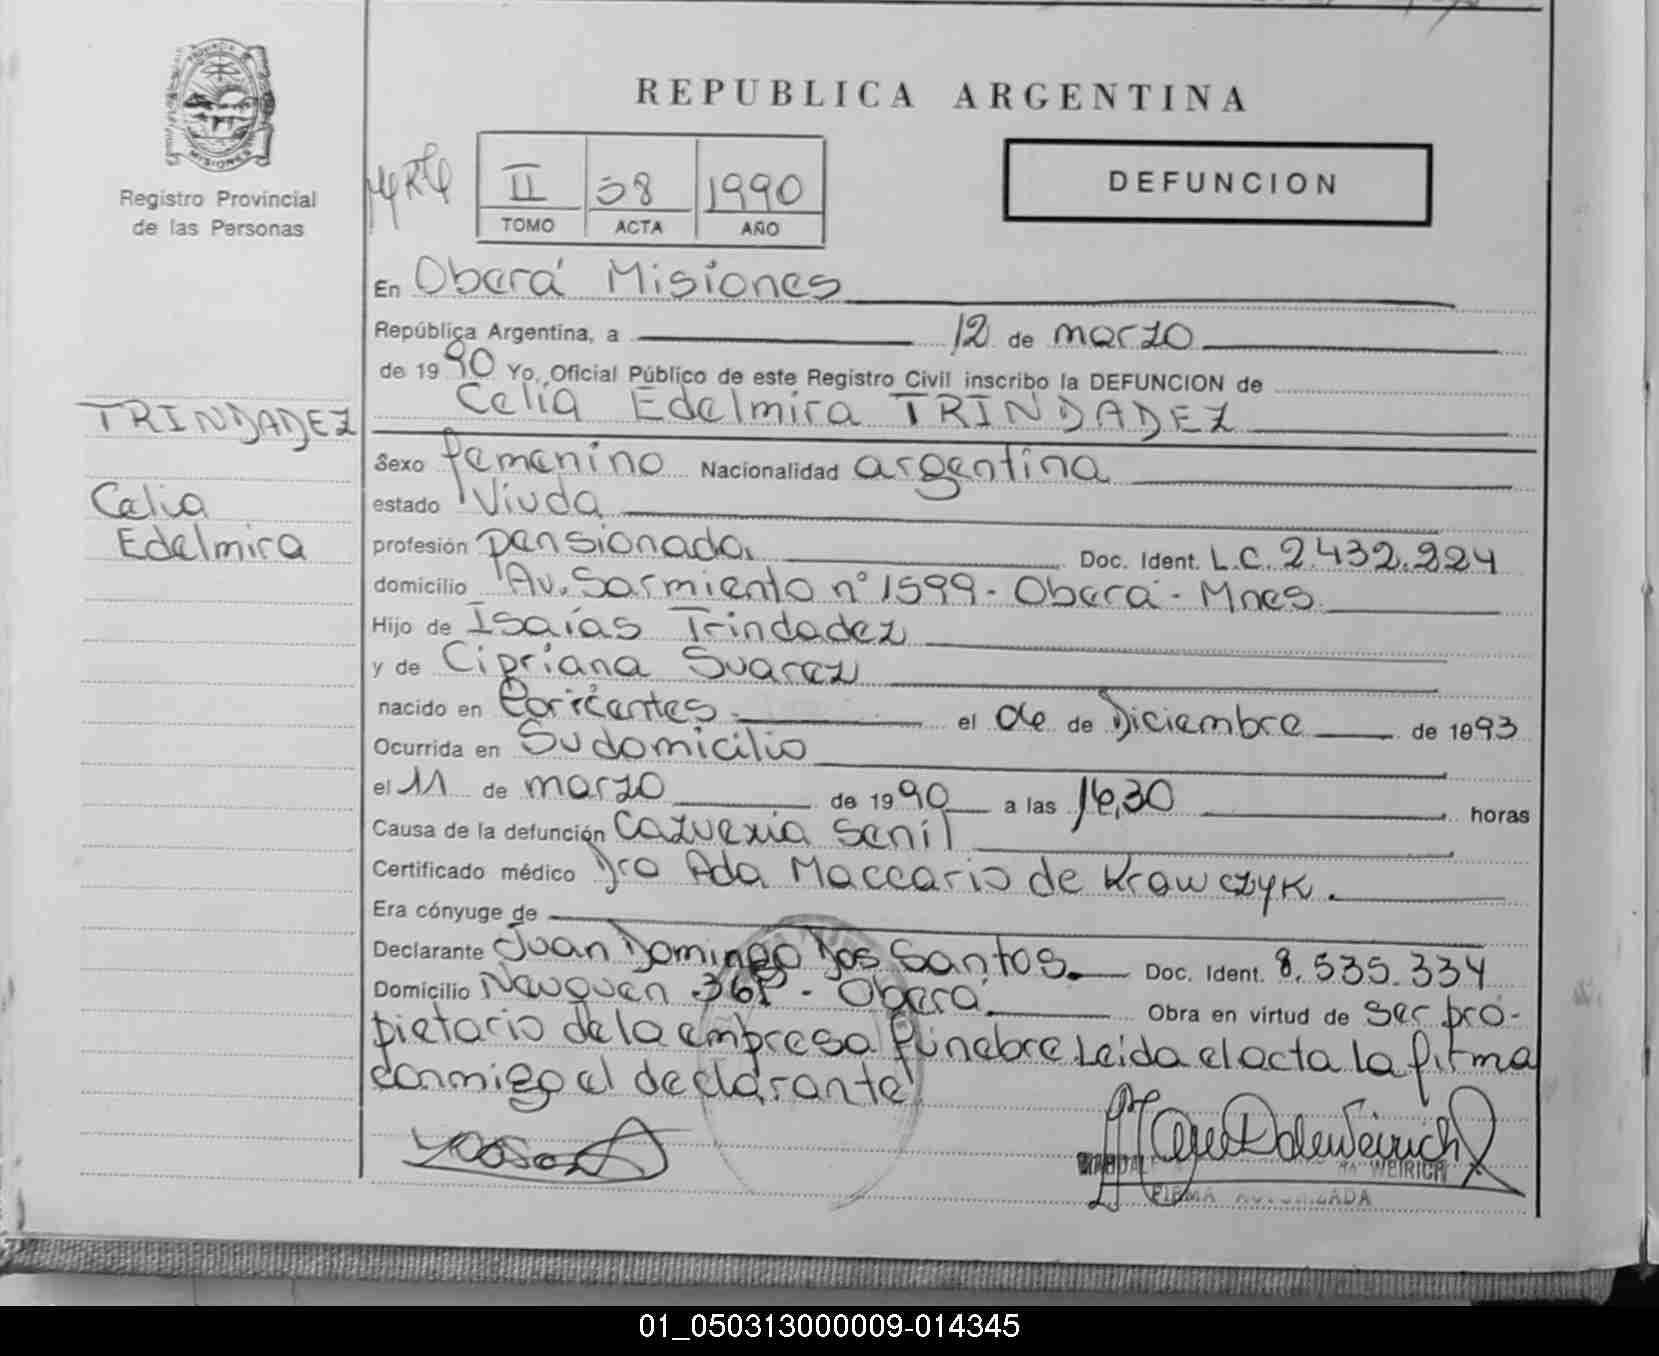 PROVINCIA DE
MISIONES
Registro Provincial
de las Personas
REPUBLICA ARGENTINA
II 38 1990
TOMO ACTA AÑO
DEFUNCION
En Oberá Misiones
República Argentina, a 12 de marzo
de 1990 Yo, Oficial Público de este Registro Civil inscribo la DEFUNCION de
Celia Edelmira TRINDADEZ
TRINDADEZ
Celia
Edelmira
Sexo femenino Nacionalidad argentina
estado Viuda
profesión pensionada. Doc. Ident. L.C. 2.432.224
domicilio Av. Sarmiento nº 1599 - Oberá - Mnes
Hijo de Isaías Trindadez
y de Cipriana Suarez
nacido en Corrientes el de Diciembre de 1893
Ocurrida en Su domicilio
el 11 de marzo de 1990 a las 16,30 horas
Causa de la defunción Cazuexia Senil
Certificado médico Dra Ada Maccario de Krawczyk.
Era cónyuge de
Declarante Juan Domingo Dos Santos. Doc. Ident. 8.535.334
Domicilio Neuquen - Oberá Obra en virtud de ser pro-
pietario de la empresa fúnebre Leida el acta la firma
conmigo el declarante
WEIRICH
FIRMA AUTORIZADA
01_050313000009-014345